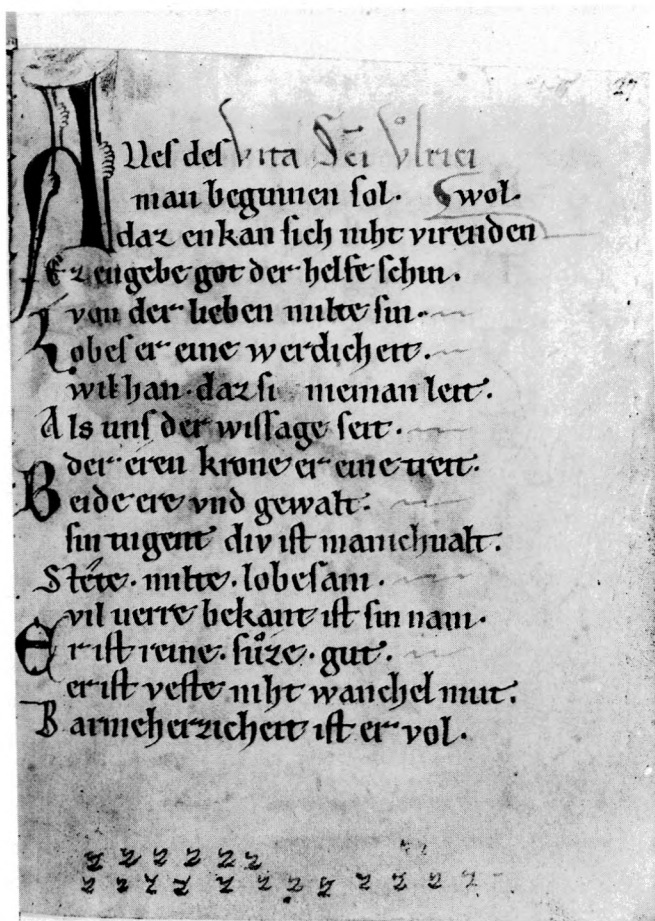 27
Alles des Vita Sci Vͦlrici
man beginnen sol. Swol
daz en kan sich niht virenden
Ez engebe got der helfe schin.
von der lieben milte sin.
Lobes er eine werdicheit.
wil han. daz si nieman leit.
Als uns der wissage seit.
der eren krone er eine treit.
Beide ere vnd gewalt.
sin tugent div ist manichualt.
Stete. milte. lobesam.
vil uerre bekant ist sin nam.
Er ist reine. suͦze. gut.
er ist veste niht wanchel mut.
Barmeherzicheit ist er vol.
z z z z z z
z z z z z z z z z z z z